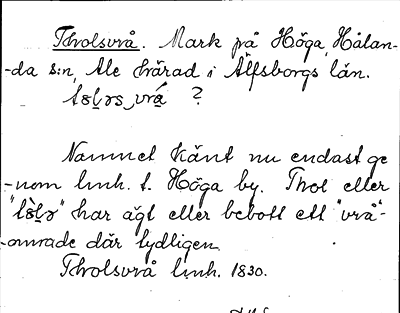 Tholsvrå. Mark på Höga, Hålan-
-da s:n, Ale härad i Älfsborgs län.
vrá ?
Namnet känt nu endast ge
-nom lmh. t. Höga by. Thol eller
har ägt eller bebott ett "vrå"-
-område där tydligen.
Tholsvrå lmh. 1830.